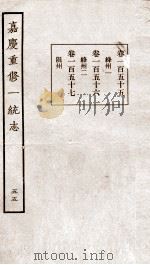 卷一百五十五
絳州一
卷一百五十六
絳州二
卷一百五十七
隰州
嘉慶重修一統志
五五